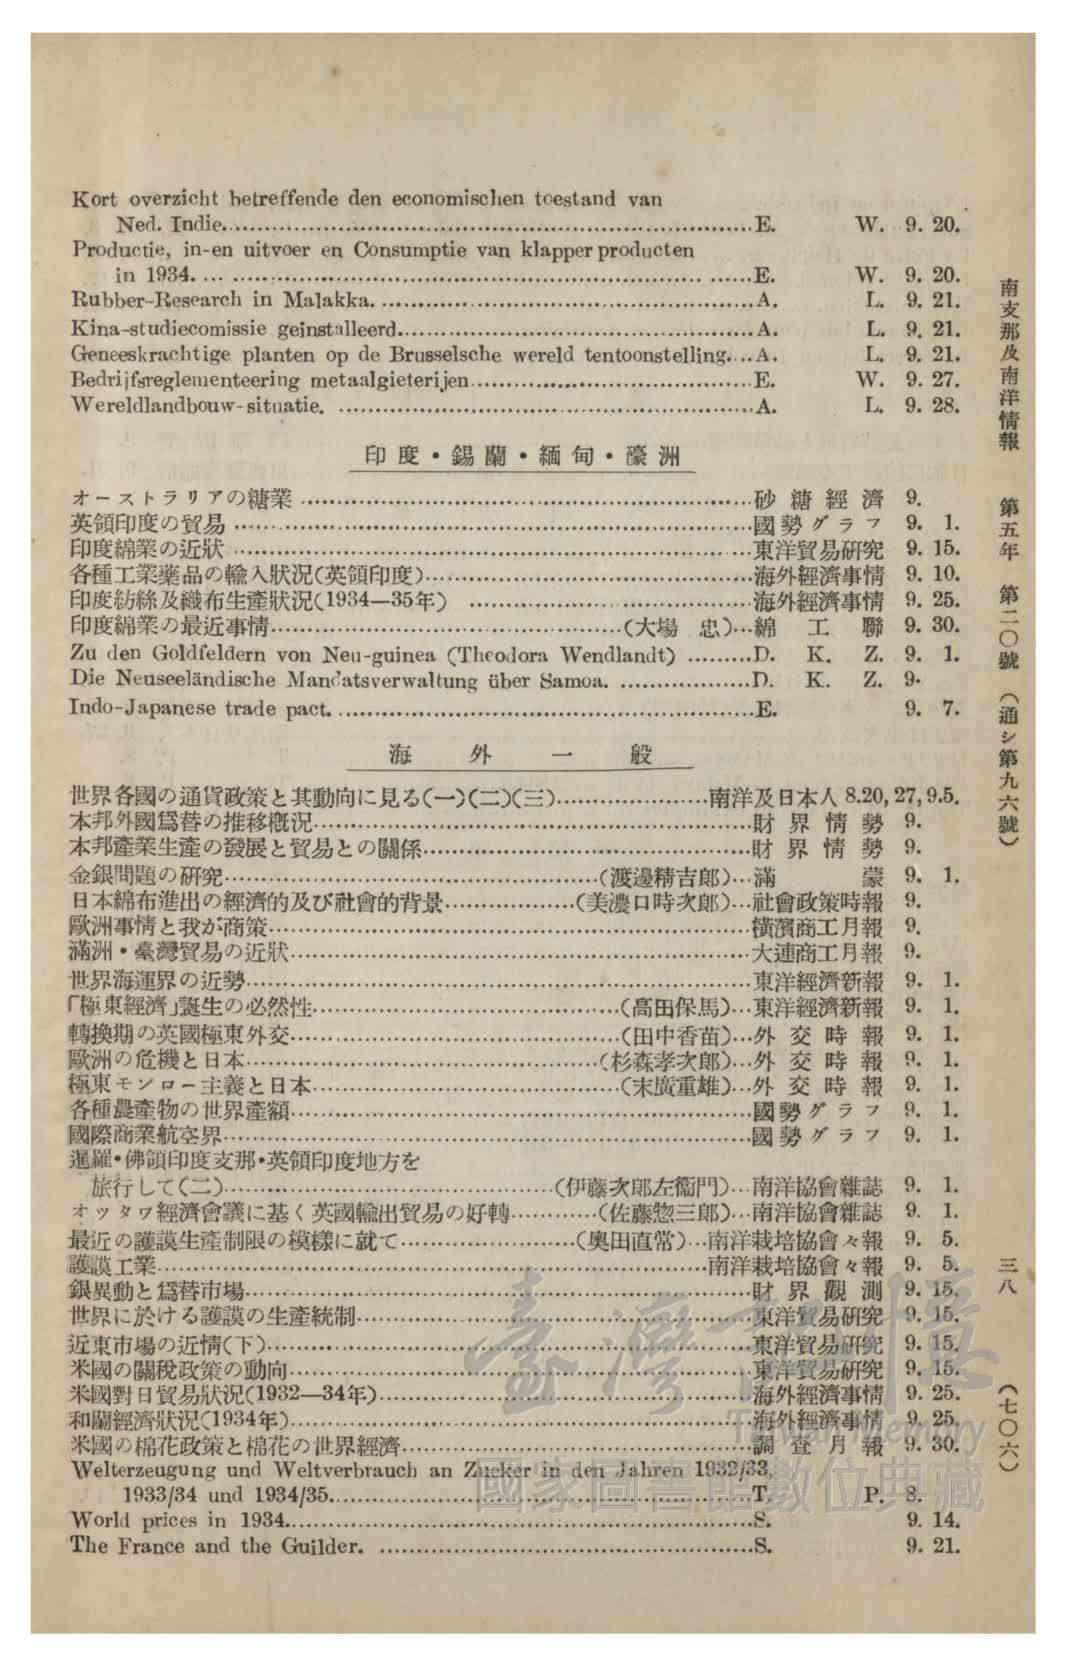 Kort overzicht betreffende den economischen toestand van
Ned. Indie.....E. W. 9. 20.
Productie, in-en uitvoer en Consumptie van klapper producten
in 1934.....E. W. 9. 20.
Rubber-Research in Malakka.....A. L. 9. 21.
Kina-studiecomissie geinstalleerd.....A. L. 9. 21.
Geneeskrachtige planten op de Brusselsche wereld tentoonstelling....A. L. 9. 21.
Bedrijfsreglementeering metaalgieterijen.....E. W. 9. 27.
Wereldlandbouw-situatie.....A. L. 9. 28.
印度・錫蘭・緬甸・濠洲
オーストラリアの糖業.....砂糖經濟 9.
英領印度の貿易.....國勢グラフ 9. 1.
印度綿業の近狀.....東洋貿易硏究 9. 15.
各種工業藥品の輸入狀況(英領印度).....海外經濟事情 9. 10.
印度紡絲及織布生產狀況(1934—35年).....海外經濟事情 9. 25.
印度綿業の最近事情.....(大場 忠)...綿工聯 9. 30.
Zu den Goldfeldern von Neu-guinea (Theodora Wendlandt).....D. K. Z. 9. 1.
Die Neuseeländische Mandatsverwaltung über Samoa.....D. K. Z. 9.
Indo-Japanese trade pact.....E. 9. 7.
海外一般
世界各國の通貨政策と其動向に見る(一)(二)(三).....南洋及日本人 8.20, 27, 9.5.
本邦外國爲替の推移槪況.....財界情勢 9.
本邦產業生產の發展と貿易との關係.....財界情勢 9.
金銀問題の硏究.....(渡邊精吉郎)...滿蒙 9. 1.
日本綿布進出の經濟的及び社會的背景.....(美濃口時次郎)...社會政策時報 9.
歐洲事情と我が商策.....橫濱商工月報 9.
滿洲・臺灣貿易の近狀.....大連商工月報 9.
世界海運界の近勢.....東洋經濟新報 9. 1.
「極東經濟」誕生の必然性.....(高田保馬)...東洋經濟新報 9. 1.
轉換期の英國極東外交.....(田中香苗)...外交時報 9. 1.
歐洲の危機と日本.....(杉森孝次郎)...外交時報 9. 1.
極東モンロー主義と日本.....(末廣重雄)...外交時報 9. 1.
各種農產物の世界產額.....國勢グラフ 9. 1.
國際商業航空界.....國勢グラフ 9. 1.
暹羅・佛領印度支那・英領印度地方を
旅行して(二).....(伊藤次郎左衞門)...南洋協會雜誌 9. 1.
オッタワ經濟會議に基く英國輸出貿易の好轉.....(佐藤惣三郎)...南洋協會雜誌 9. 1.
最近の護謨生產制限の模樣に就て.....(奧田直常)...南洋栽培協會々報 9. 5.
護謨工業.....南洋栽培協會々報 9. 5.
銀異動と爲替市場.....財界觀測 9. 15.
世界に於ける護謨の生產統制.....東洋貿易硏究 9. 15.
近東市場の近情(下).....東洋貿易硏究 9. 15.
米國の關稅政策の動向.....東洋貿易硏究 9. 15.
米國對日貿易狀況(1932—34年).....海外經濟事情 9. 25.
和蘭經濟狀況(1934年).....海外經濟事情 9. 25.
米國の棉花政策と棉花の世界經濟.....調査月報 9. 30.
Welterzeugung und Weltverbrauch an Zucker in den Jahren 1932/33,
1933/34 und 1934/35.....T. P. 8.
World prices in 1934.....S. 9. 14.
The France and the Guilder.....S. 9. 21.
南支那及南洋情報 第五年 第二〇號 (通シ第九六號)
三八
(七〇六)
臺灣記憶
Taiwan Memory
國家圖書館數位典藏